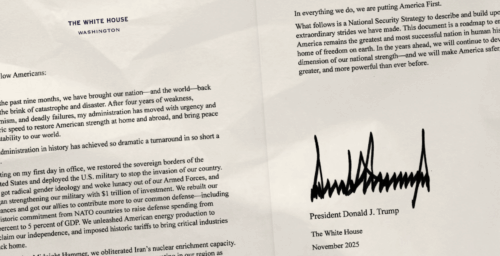 THE WHITE HOUSE
WASHINGTON
low Americans:
the past nine months, we have brought our nation—and the world—back
the brink of catastrophe and disaster. After four years of weakness,
mism, and deadly failures, my administration has moved with urgency and
ric speed to restore American strength at home and abroad, and bring peace
tability to our world.
dministration in history has achieved so dramatic a turnaround in so short a
ting on my first day in office, we restored the sovereign borders of the
ted States and deployed the U.S. military to stop the invasion of our country.
got radical gender ideology and woke lunacy out of our Armed Forces, and
an strengthening our military with $1 trillion of investment. We rebuilt our
ances and got our allies to contribute more to our common defense—including
istoric commitment from NATO countries to raise defense spending from
percent to 5 percent of GDP. We unleashed American energy production to
claim our independence, and imposed historic tariffs to bring critical industries
ck home.
Midnight Hammer, we obliterated Iran's nuclear enrichment capacity.
in our region as
In everything we do, we are putting America First.
What follows is a National Security Strategy to describe and build upon
extraordinary strides we have made. This document is a roadmap to en
America remains the greatest and most successful nation in human his
home of freedom on earth. In the years ahead, we will continue to dev
dimension of our national strength—and we will make America safer
greater, and more powerful than ever before.
President Donald J. Trump
The White House
November 2025